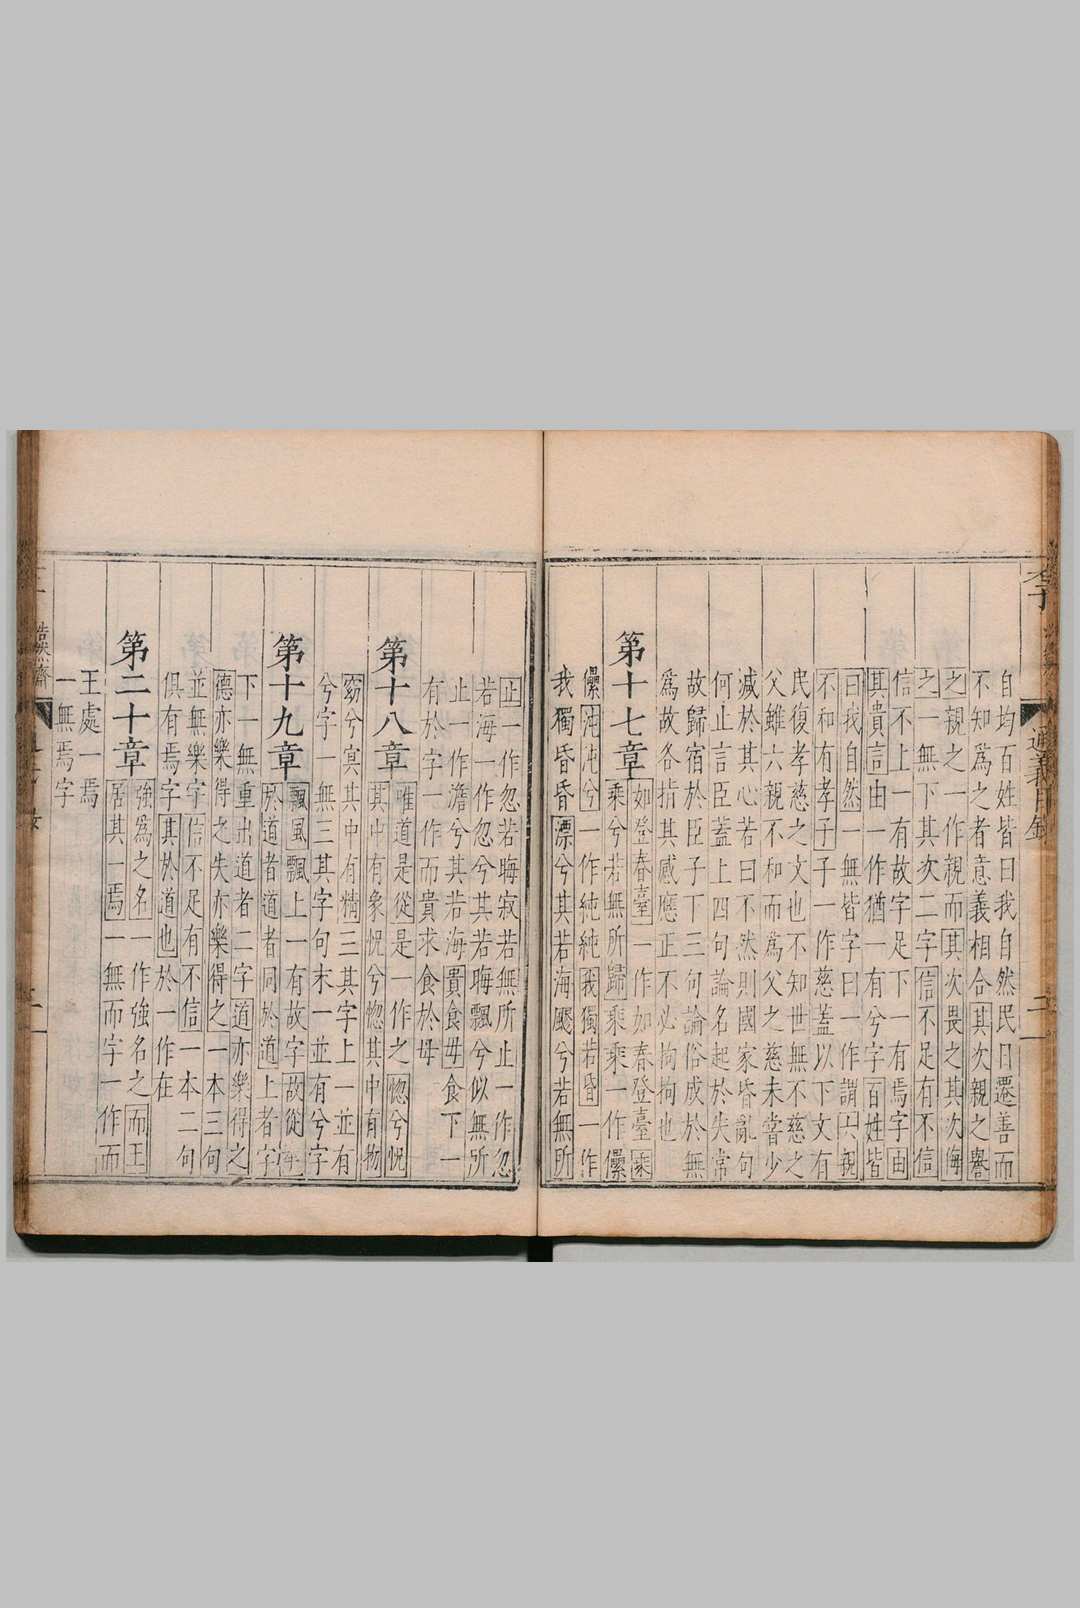 通義目錄
自均百姓皆曰我自然民日遷善而
不知爲之者意義相合其次親之譽
之親之一作親而其次畏之其次侮
之一無下其次二字信不足有不信
信不上一有故字足下一有焉字由
其貴言由一作猶一有兮字百姓皆
曰我自然一無皆字曰一作謂六親
不和有孝子子一作慈蓋以下文有
民復孝慈之文也不知世無不慈之
父雖六親不和而爲父之慈未嘗少
減於其心若曰不然則國家昏亂句
何止言臣蓋上四句論名起於失常
故歸宿於臣子丁三句論俗成於無
爲故各指其感應正不必拘拘也
第十七章
如登春臺一作如春登臺乘
乘兮若無所歸乘乘一作儽
儽沌沌兮一作純純我獨若昏一作
我獨昏昏漂兮其若海飂兮若無所
止一作忽若晦寂若無所止一作忽
若海一作忽兮其若晦飄兮似無所
止一作澹兮其若海貴食母食下一
有於字一作而貴求食於母
第十八章
唯道是從是一作之惚兮怳
其中有象怳兮惚其中有物
窈兮冥其中有情三其字上一並有
兮字一無三其字句末一並有兮字
第十九章
飄風飄上一有故字故從事
於道者道者同於道上者字
下一無重出道者二字道亦樂得之
德亦樂得之失亦樂得之一本三句
並無樂字信不足有不信一本二句
俱有焉字其於道也於一作在
第二十章
強爲之名一作強名之而王
居其一焉一無而字一作而
王處一焉
一無焉字